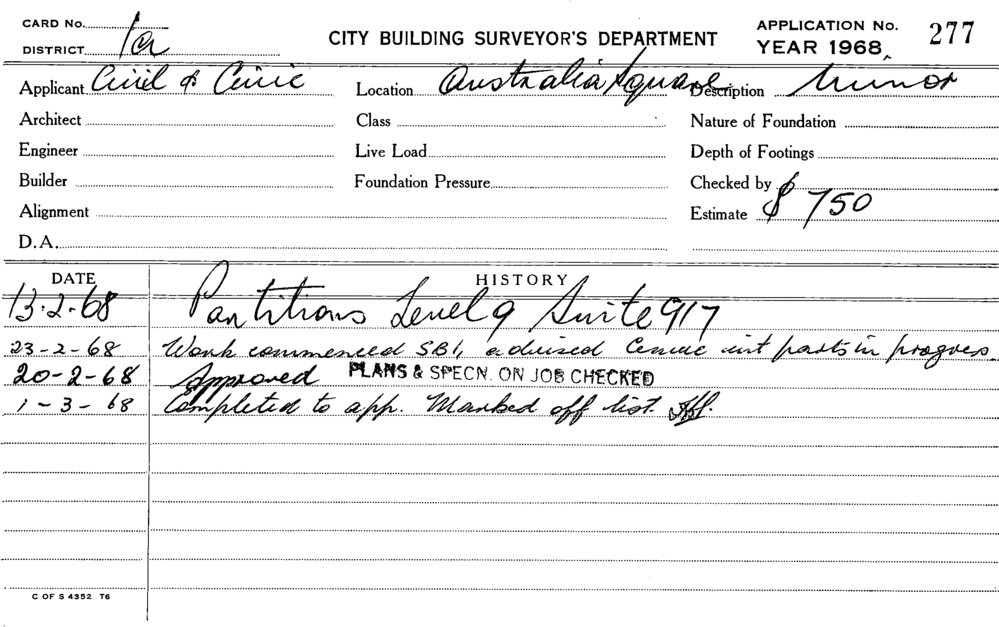 CARD No.
DISTRICT 1a
CITY BUILDING SURVEYOR'S DEPARTMENT
APPLICATION No. 277
YEAR 1968
Applicant Civil & Civic
Location Australia Square
Description Minor
Architect
Class
Nature of Foundation
Engineer
Live Load
Depth of Footings
Builder
Foundation Pressure
Checked by
Alignment
Estimate $ 750
D.A.
DATE HISTORY
13-2-68 Partitions Level 9 Suite 917
23-2-68 Work commenced SB1, advised int parts in progress.
20-2-68 Approved PLANS & SPECN. ON JOB CHECKED
1-3-68 Completed to app. Marked off list.
C OF S 4352 T6